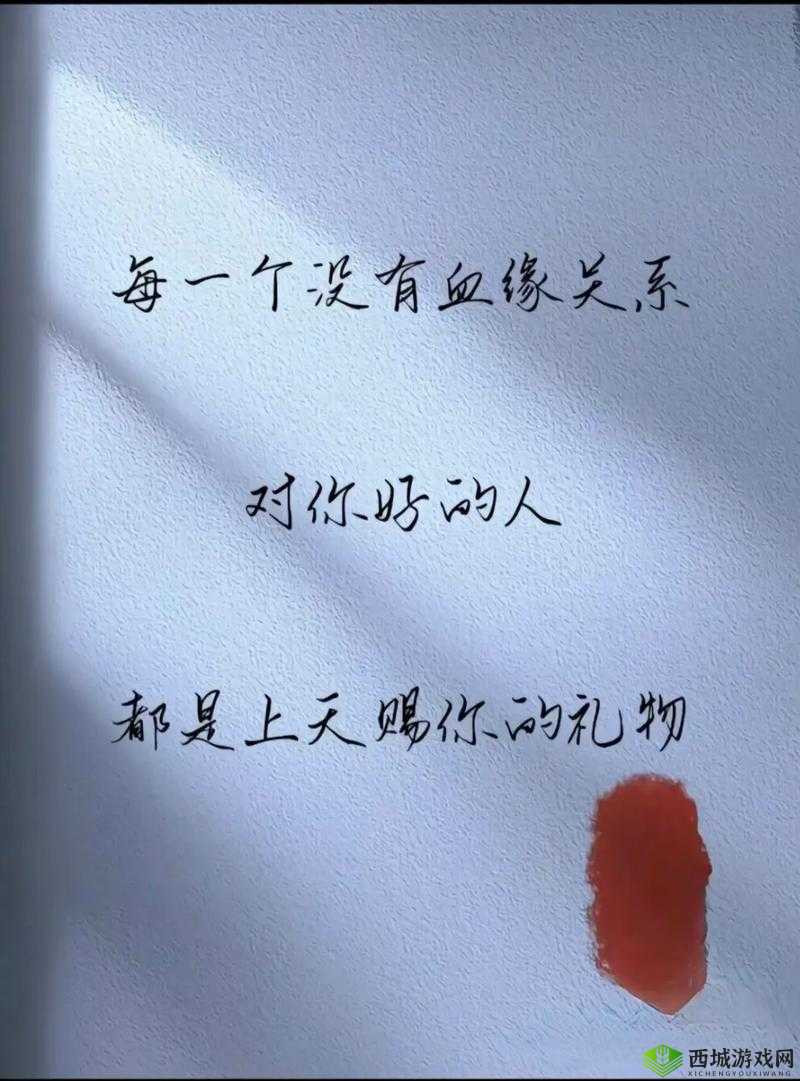 每一个没有血缘关系
对你好的人
都是上天赐你的礼物
西城游戏网
XICHENGYOUXIWANG